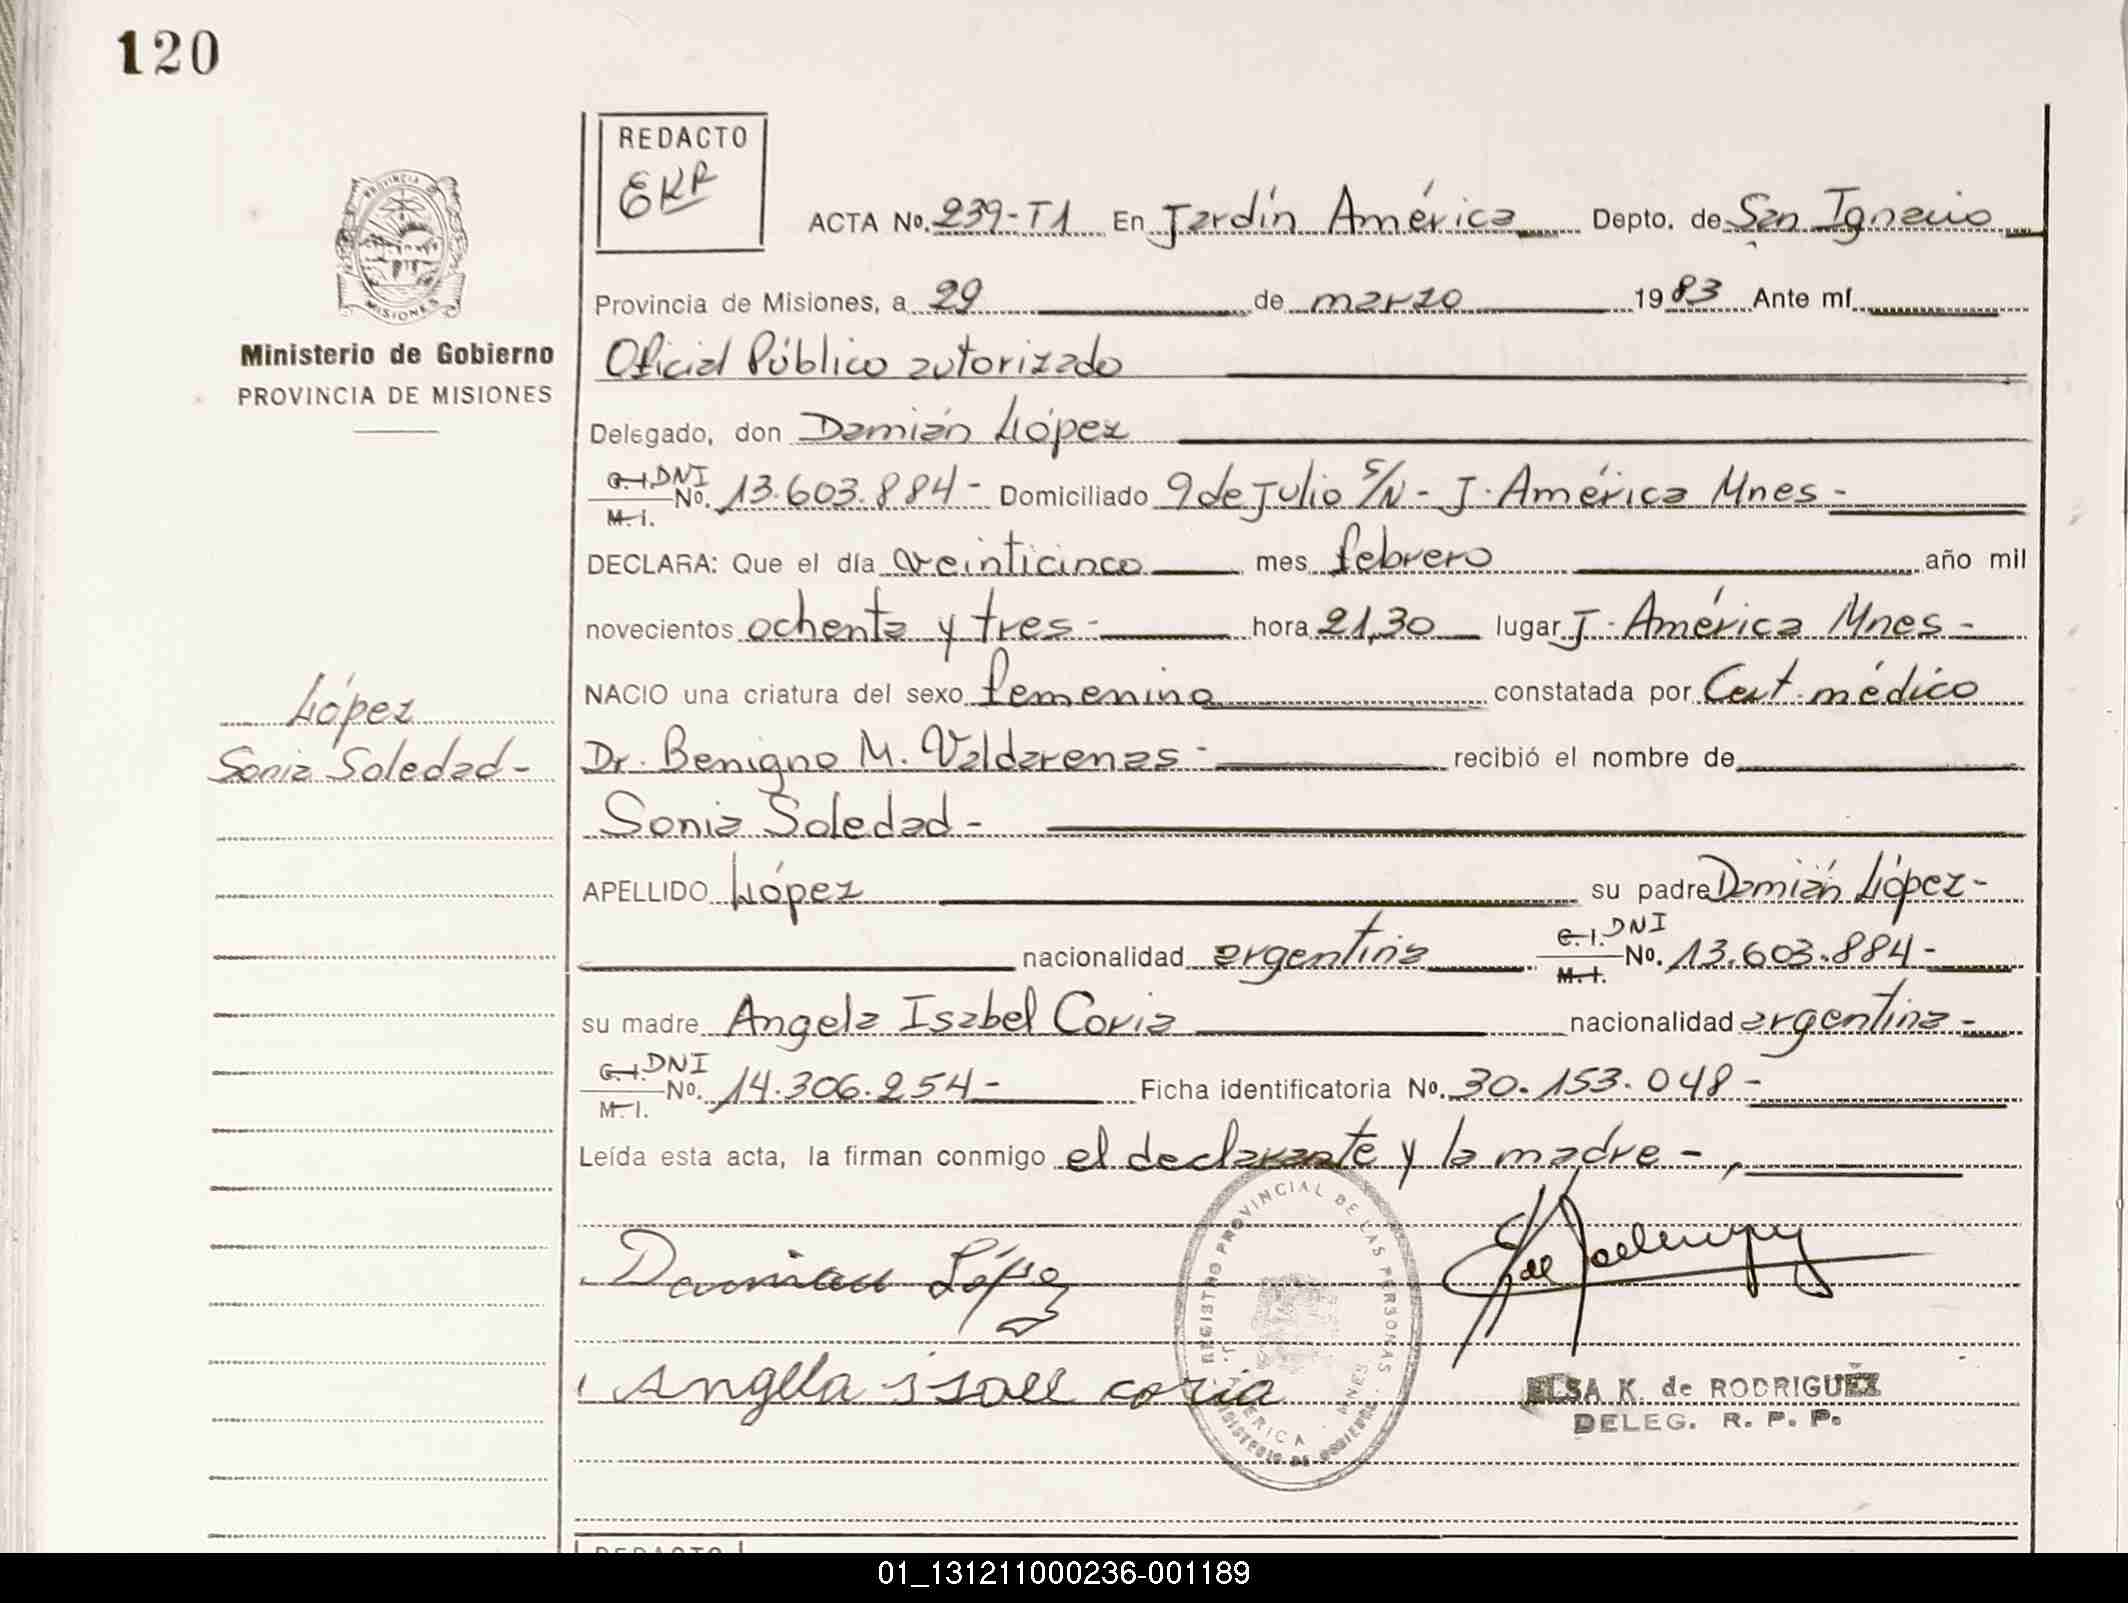 120
REDACTO
EKR
PROVINCIA
MISIONES
Ministerio de Gobierno
PROVINCIA DE MISIONES
ACTA No. 239-T1 En Jardín América Depto. de San Ignacio
Provincia de Misiones, a 29 de marzo 1983 Ante mí
Oficial Público autorizado
Delegado, don Damián López
C.I. DNI
M.I. No. 13.603.884- Domiciliado 9 de Julio S/N - J. América Mnes-
DECLARA: Que el día veinticinco mes febrero año mil
novecientos ochenta y tres- hora 21,30 lugar J. América Mnes-
NACIO una criatura del sexo femenino constatada por Cert. médico
López
Sonia Soledad-
Dr. Benigno M. Valdarenas- recibió el nombre de
Sonia Soledad-
APELLIDO López su padre Damián López-
nacionalidad argentina C.I. DNI M.I. No. 13.603.884-
su madre Angela Isabel Coria nacionalidad argentina-
C.I. DNI
M.I. No. 14.306.254- Ficha identificatoria No. 30.153.048-
Leída esta acta, la firman conmigo el declarante y la madre-,
Damian López
Angela isael coria
REGISTRO PROVINCIAL DE LAS PERSONAS
MINISTERIO DE GOBIERNO
J. AMERICA - MNES
ELSA K. de RODRIGUEZ
DELEG. R. P. P.
REDACTO
01_131211000236-001189